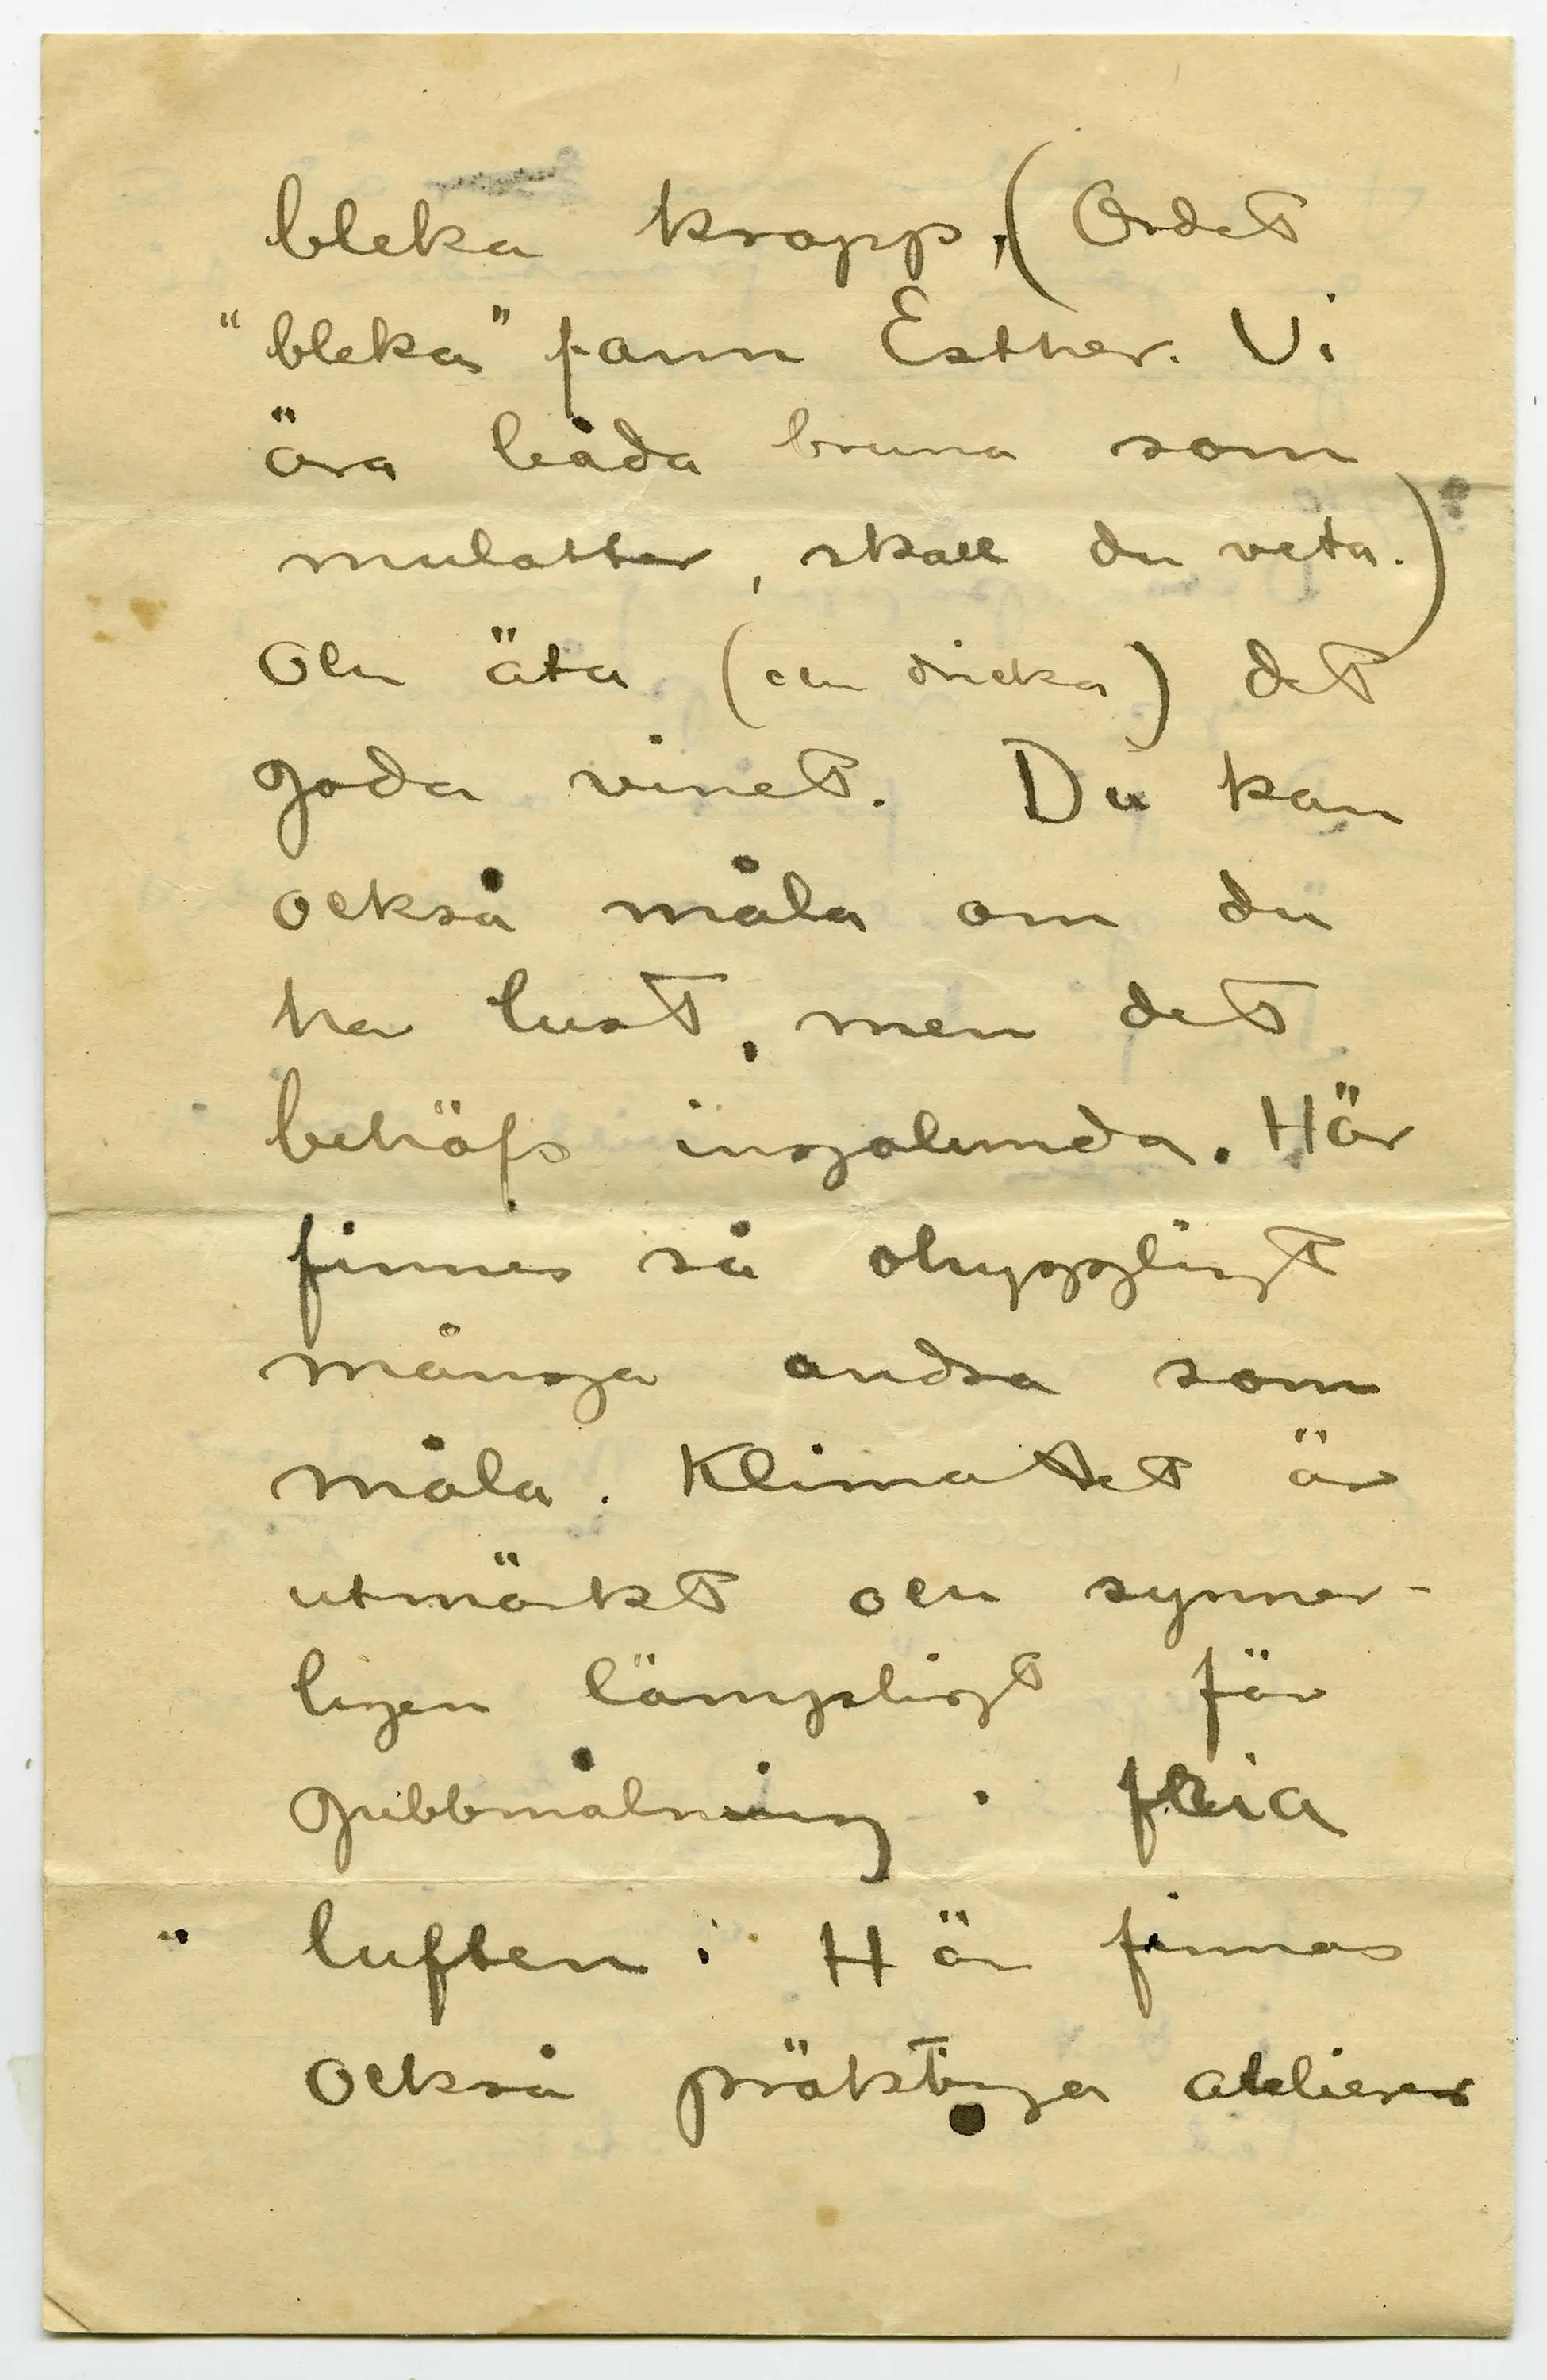 bleka kropp. (Ordet
"bleka" fann Esther. Vi
ära båda bruna som
mulatter, skall du veta.)
Och äta (och dricka) det
goda vinet. Du kan
också måla om du
har lust, men det
behöfs ingalunda. Här
finnes så ohyggligt
många andra som
måla. Klimatet är
utmärkt och synner-
ligen lämpligt för
gubbmålning i fria
luften. Här finnas
också präktiga atelierer